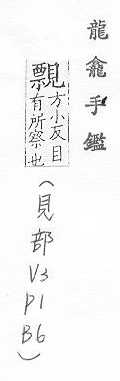 龍龕手鑑
覹方小反目
有所察也
(見部
V3
P1
B6)